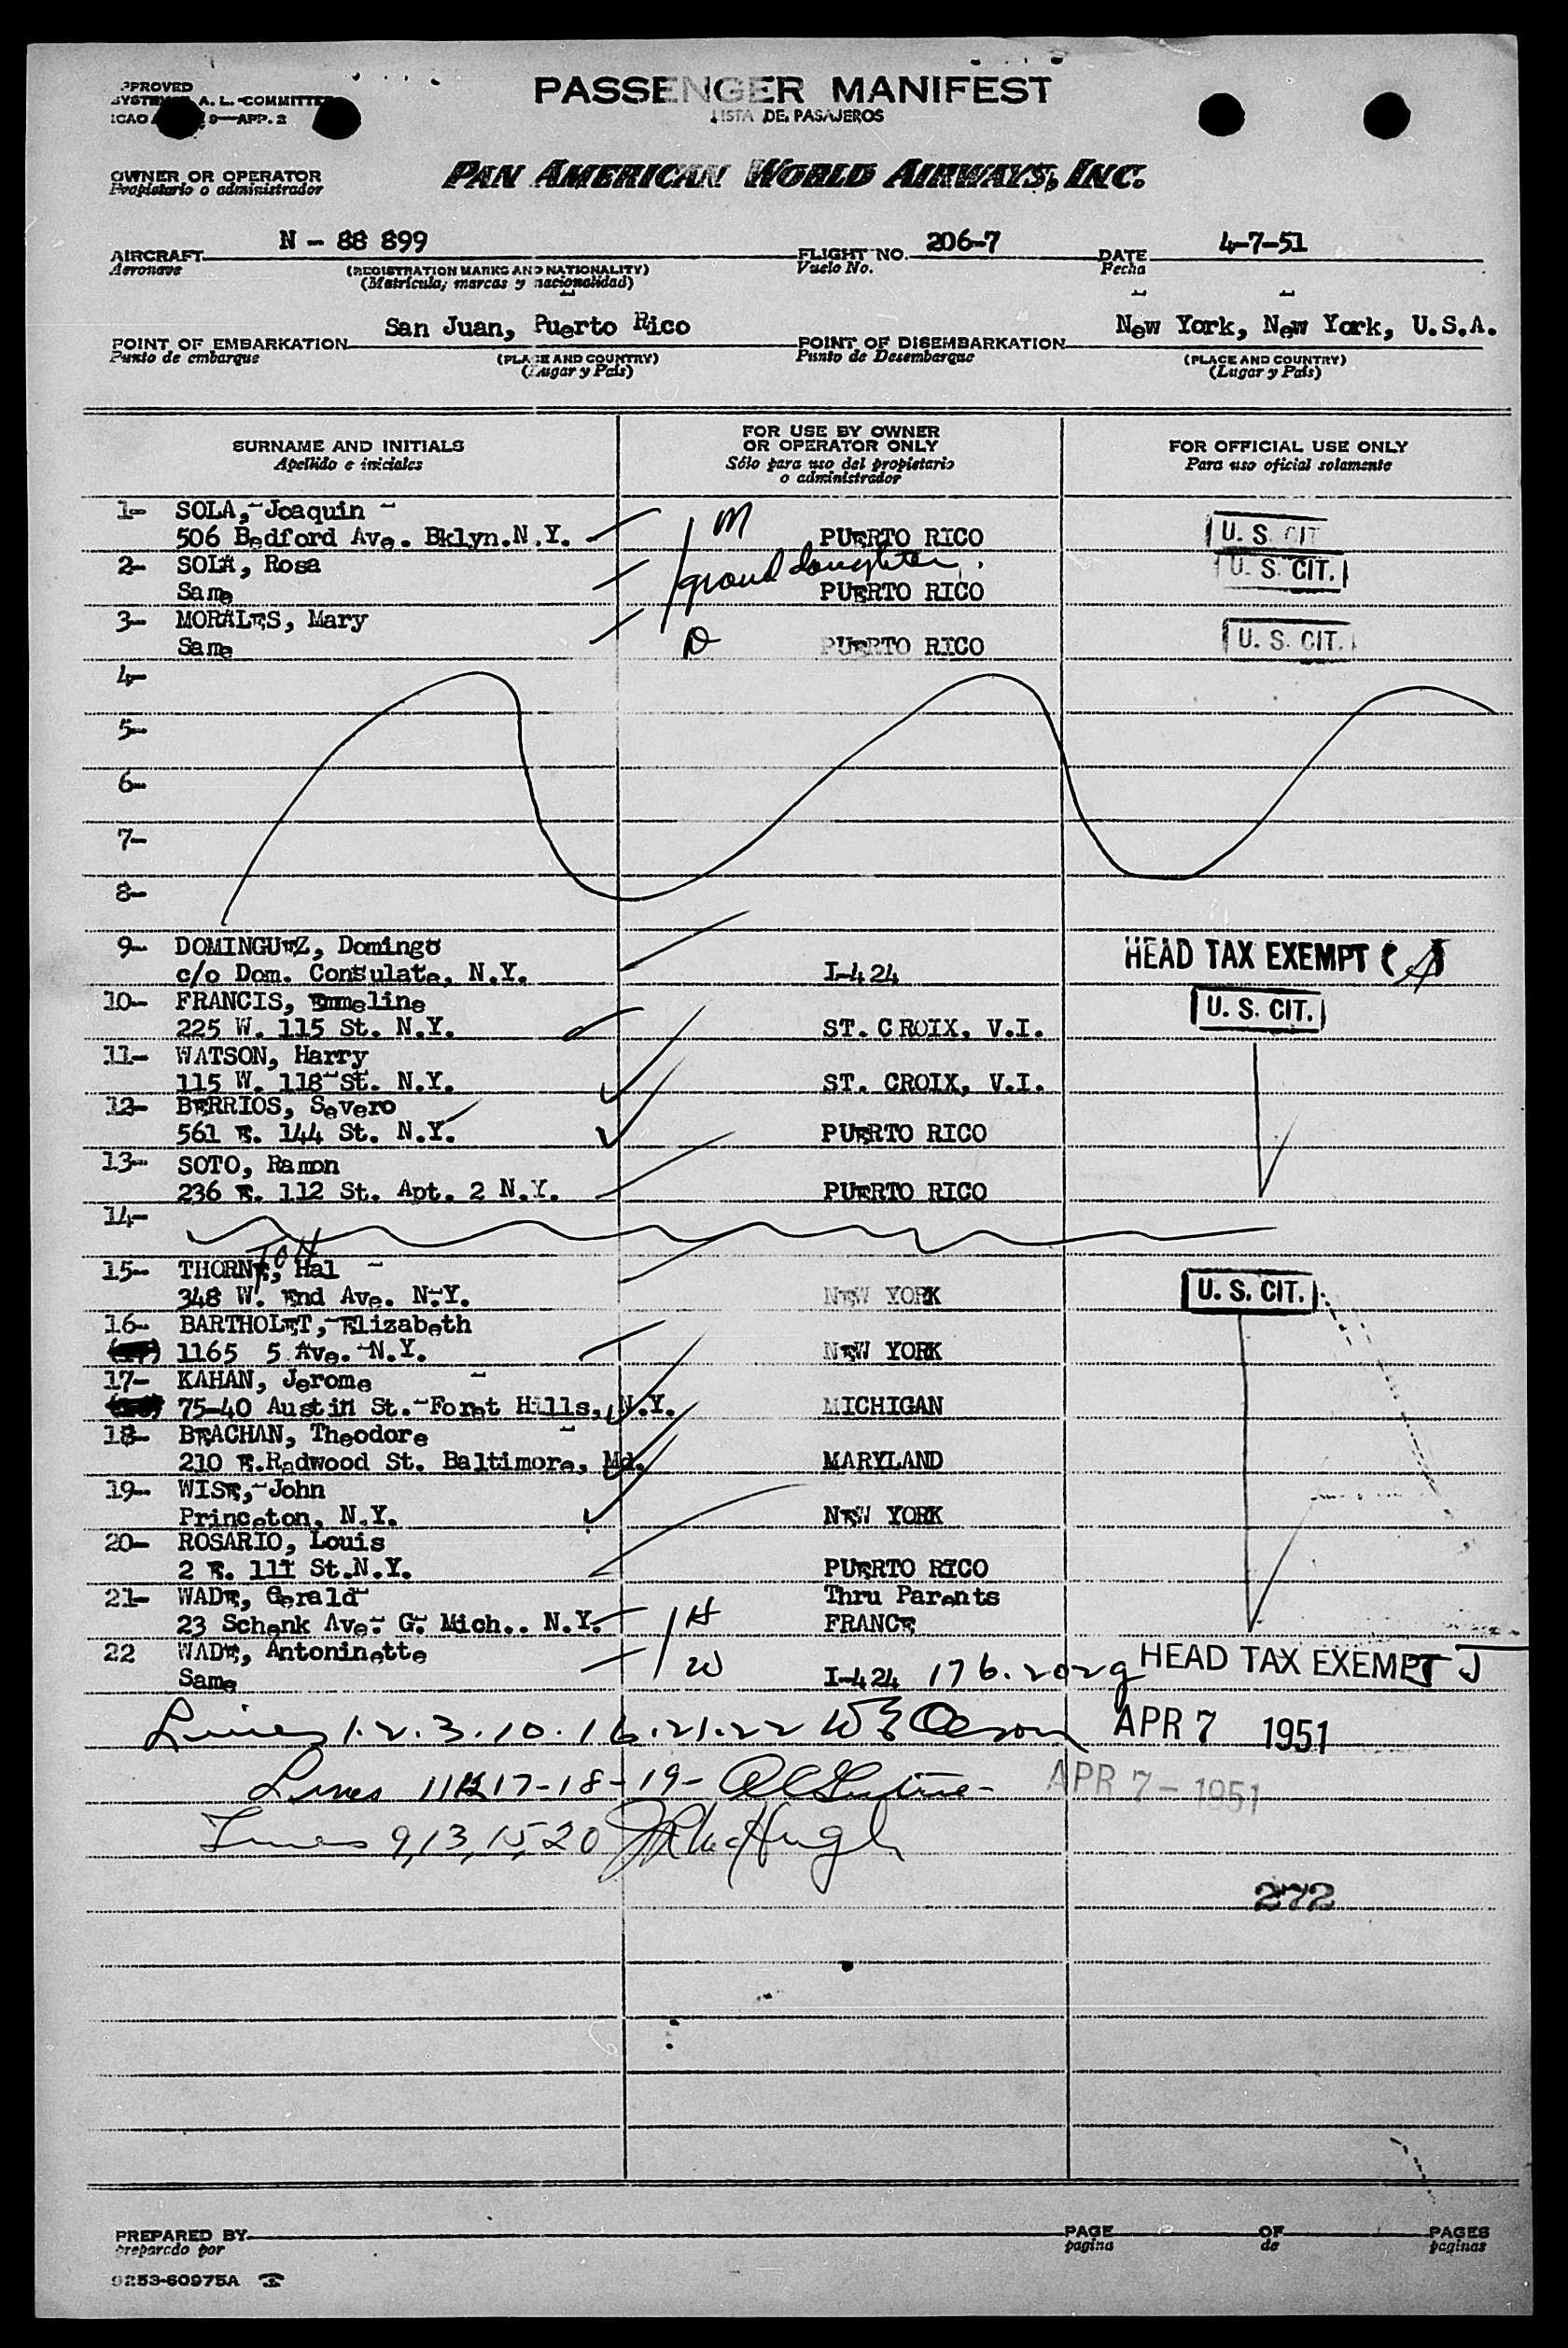 APPROVED
A. L. COMMITTEE
ICAO 9—APP. 2
PASSENGER MANIFEST
LISTA DE PASAJEROS
OWNER OR OPERATOR
Propietario o administrador
PAN AMERICAN WORLD AIRWAYS, INC.
AIRCRAFT N - 88 899 FLIGHT NO. 206-7 DATE 4-7-51
Aeronave (REGISTRATION MARKS AND NATIONALITY) Vuelo No. Fecha
(Matrícula, marcas y nacionalidad)
POINT OF EMBARKATION San Juan, Puerto Rico POINT OF DISEMBARKATION New York, New York, U.S.A.
Punto de embarque (PLACE AND COUNTRY) Punto de Desembarque (PLACE AND COUNTRY)
(Lugar y País) (Lugar y País)
SURNAME AND INITIALS FOR USE BY OWNER OR OPERATOR ONLY FOR OFFICIAL USE ONLY
Apellido e iniciales Sólo para uso del propietario o administrador Para uso oficial solamente
1- SOLA, Joaquin M
506 Bedford Ave. Bklyn.N.Y. PUERTO RICO U. S. CIT
2- SOLA, Rosa grand daughter
Same PUERTO RICO U. S. CIT.
3- MORALES, Mary
Same D PUERTO RICO U. S. CIT.
4-
5-
6-
7-
8-
9- DOMINGUEZ, Domingo HEAD TAX EXEMPT
c/o Dom. Consulate, N.Y. I-424
10- FRANCIS, Emmeline U. S. CIT.
225 W. 115 St. N.Y. ST. CROIX, V.I.
11- WATSON, Harry
115 W. 118 St. N.Y. ST. CROIX, V.I.
12- BERRIOS, Severo
561 E. 144 St. N.Y. PUERTO RICO
13- SOTO, Ramon
236 E. 112 St. Apt. 2 N.Y. PUERTO RICO
14-
15- THORNE, Hal
348 W. End Ave. N.Y. NEW YORK U. S. CIT.
16- BARTHOLET, Elizabeth
1165 5 Ave. N.Y. NEW YORK
17- KAHAN, Jerome
75-40 Austin St. Foret Hills, N.Y. MICHIGAN
18- BEACHAN, Theodore
210 E.Redwood St. Baltimore, Md. MARYLAND
19- WISE, John
Princeton, N.Y. NEW YORK
20- ROSARIO, Louis
2 E. 111 St.N.Y. PUERTO RICO
21- WADE, Gerald H Thru Parents
23 Schenk Ave. G. Mich.. N.Y. FRANCE
22 WADE, Antoninette W HEAD TAX EXEMPT J
Same I-424 176.202g
Lines 1.2.3.10.16.21.22 W E Olson APR 7 1951
Lines 11 12 17-18-19- APR 7 - 1951
Lines 9,13,15,20 McHugh
272
PREPARED BY PAGE OF PAGES
preparado por pagina de paginas
9253-60975A